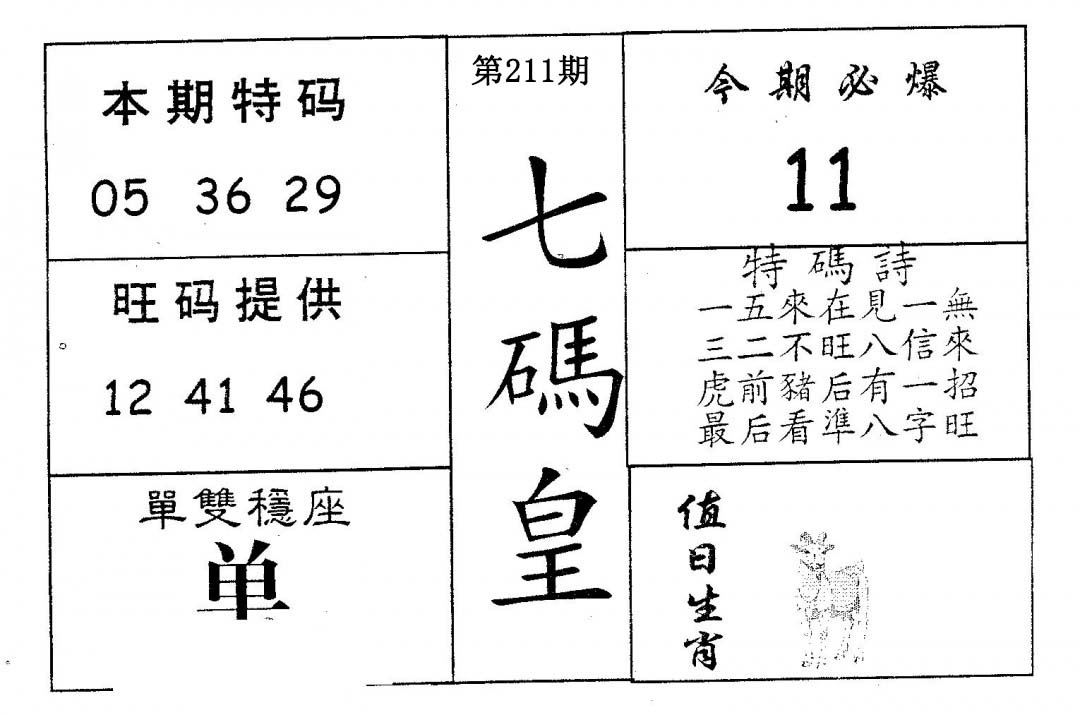 本期特码
05 36 29
旺码提供
12 41 46
單雙穩座
单
第211期
七
碼
皇
今期必爆
11
特碼詩
一五來在見一無
三二不旺八信來
虎前豬后有一招
最后看準八字旺
值
日
生
肖